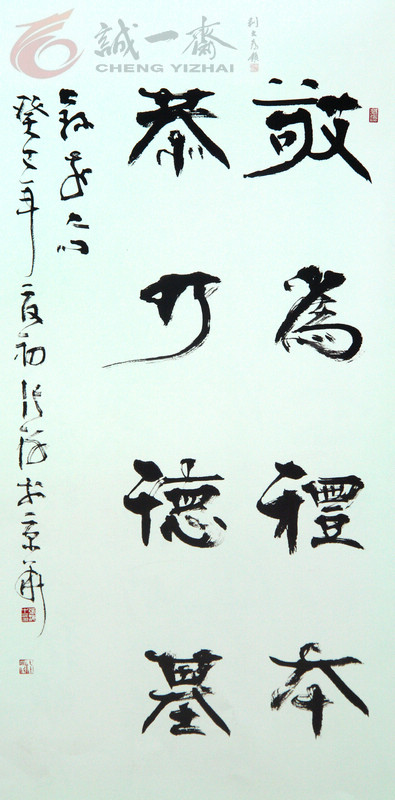 誠一齋
CHENG YIZHAI
敬為禮本
恭乃德基
癸巳年夏初於京華